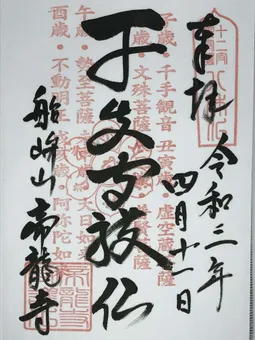 奉拝
令和二年
四月十一日
干支守護仏
船峅山
帝龍寺
子歳・千手観音 丑寅歳・虚空蔵菩薩
歳・文殊菩薩 普賢菩薩
午歳・勢至菩薩 大日如来
酉歳・不動明王 戌亥歳・阿弥陀如来